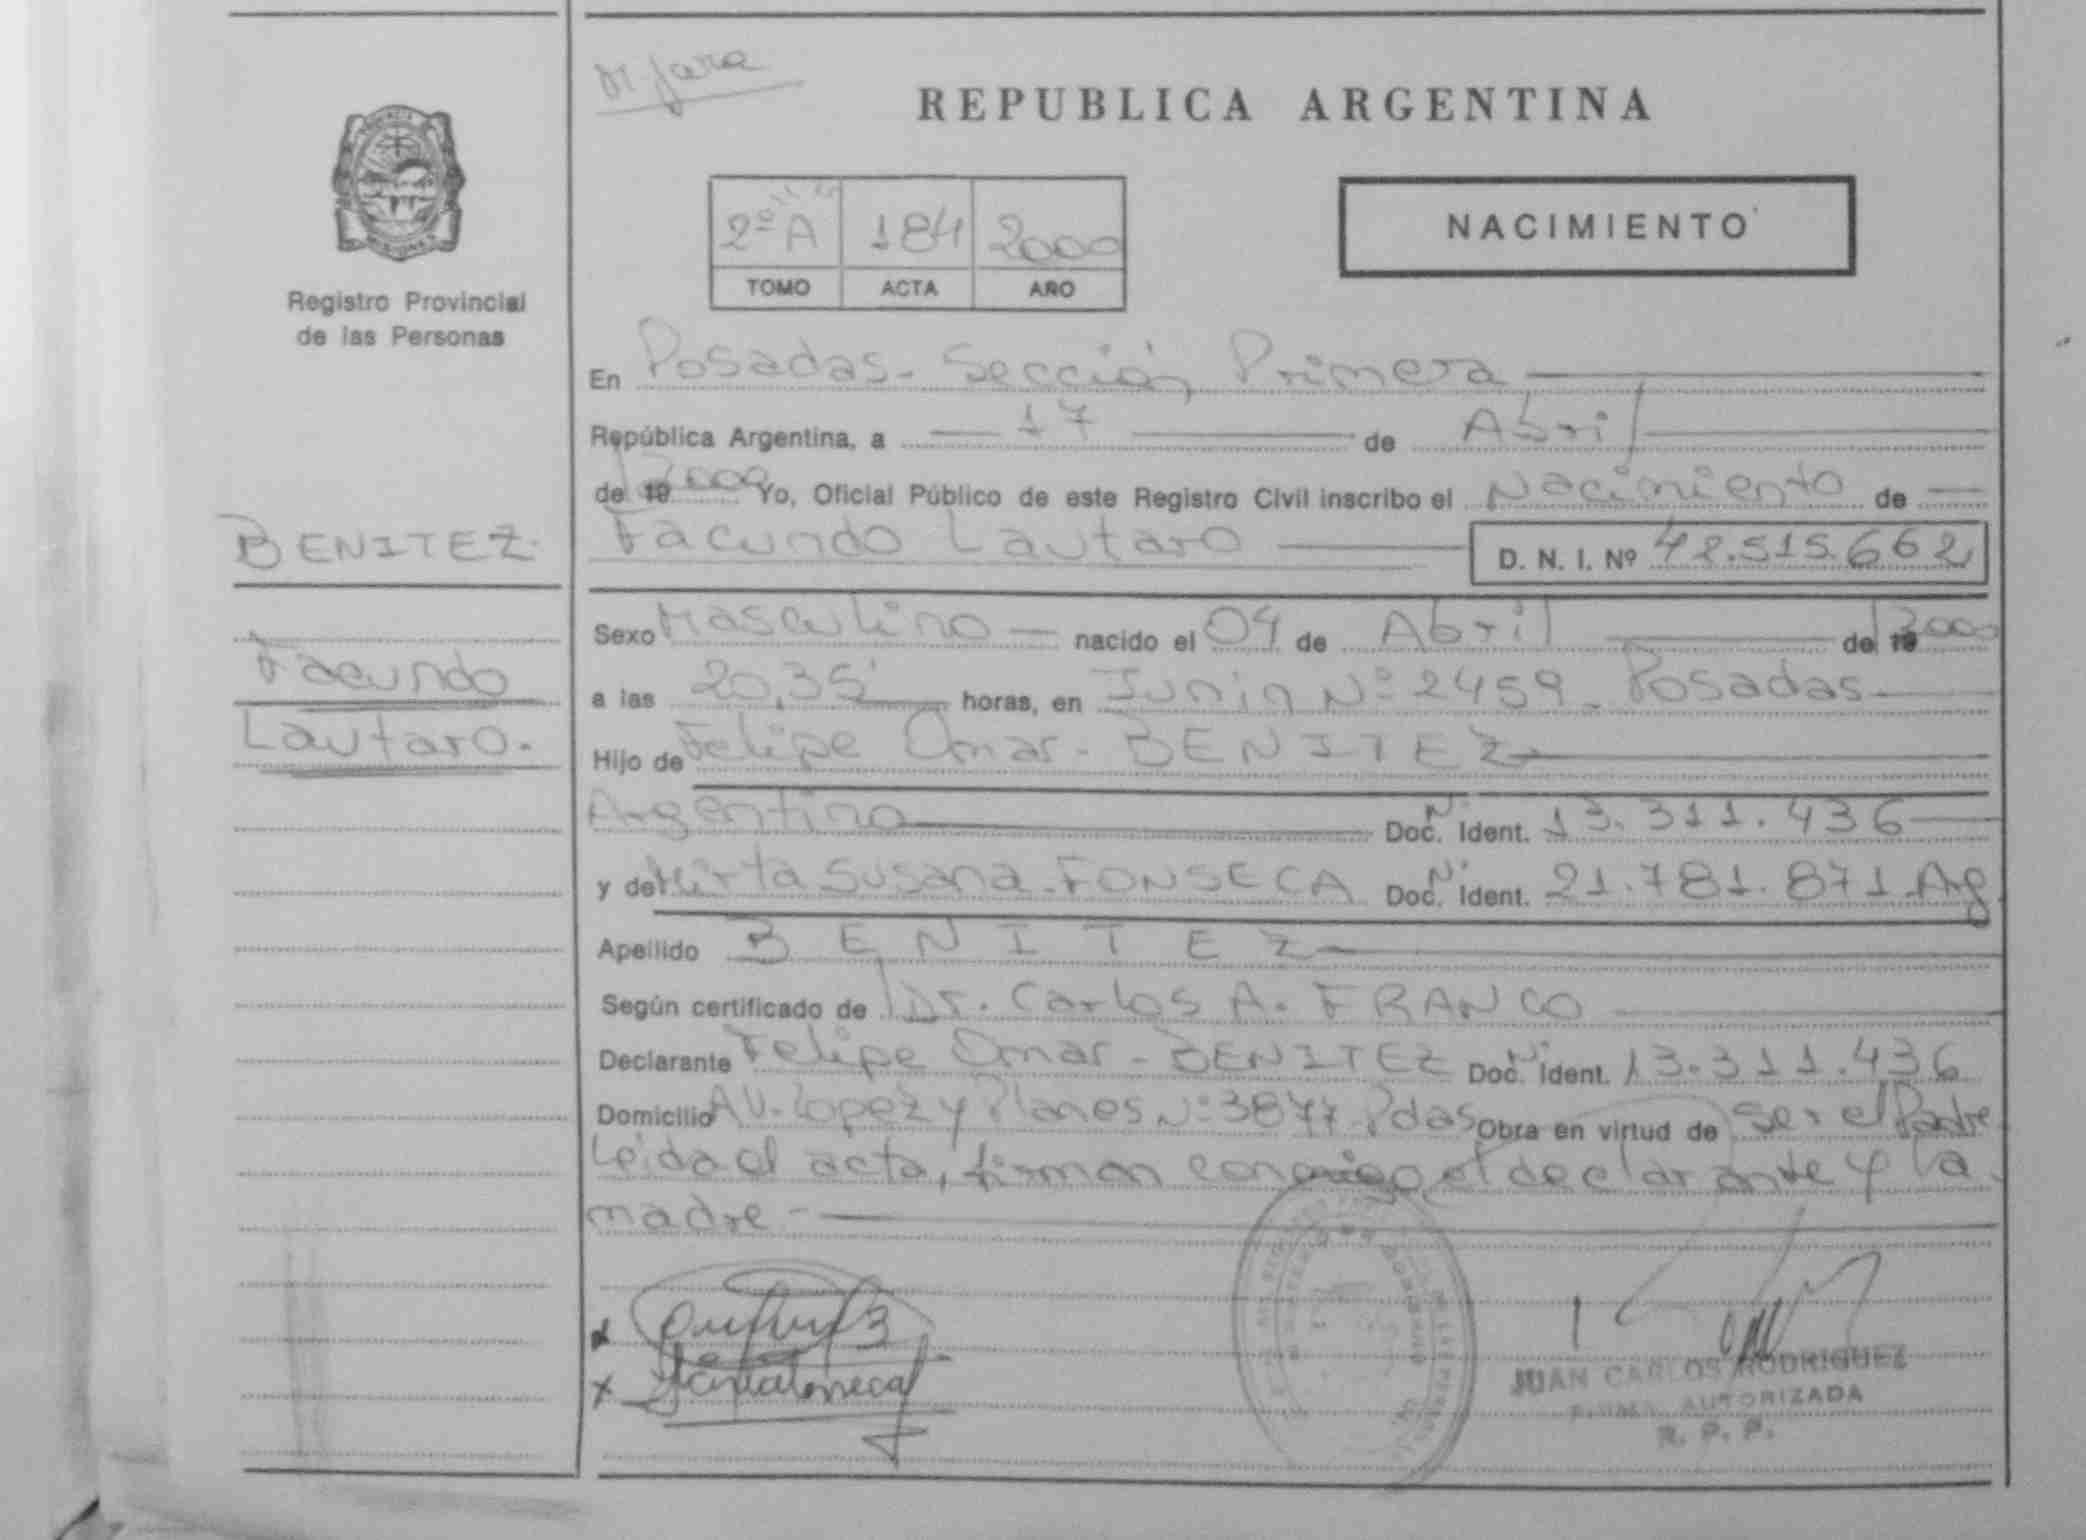 Dr Jara
REPUBLICA ARGENTINA
2º A 184 2000
TOMO ACTA AÑO
NACIMIENTO
Registro Provincial
de las Personas
En Posadas - Sección Primera
República Argentina, a 17 de Abril
de 19 2000 Yo, Oficial Público de este Registro Civil inscribo el Nacimiento de
BENITEZ
Facundo Lautaro D. N. I. Nº 42.515.662
Facundo
Lautaro.
Sexo Masculino nacido el 04 de Abril de 19 2000
a las 20,35 horas, en Junin Nº 2459 - Posadas
Hijo de Felipe Omar - BENITEZ
Argentino Doc. Ident. N: 13.311.436
y de Mirta Susana - FONSECA Doc. Ident. N: 21.781.871 Ag
Apellido BENITEZ
Según certificado de Dr. Carlos A. FRANCO
Declarante Felipe Omar - BENITEZ Doc. Ident. N: 13.311.436
Domicilio AV. Lopez y Planes Nº 3877 - Pdas Obra en virtud de ser el Padre
Leida el acta, firman conmigo el declarante y la
madre -
JUAN CARLOS RODRIGUEZ
FIRMA AUTORIZADA
R. P. P.